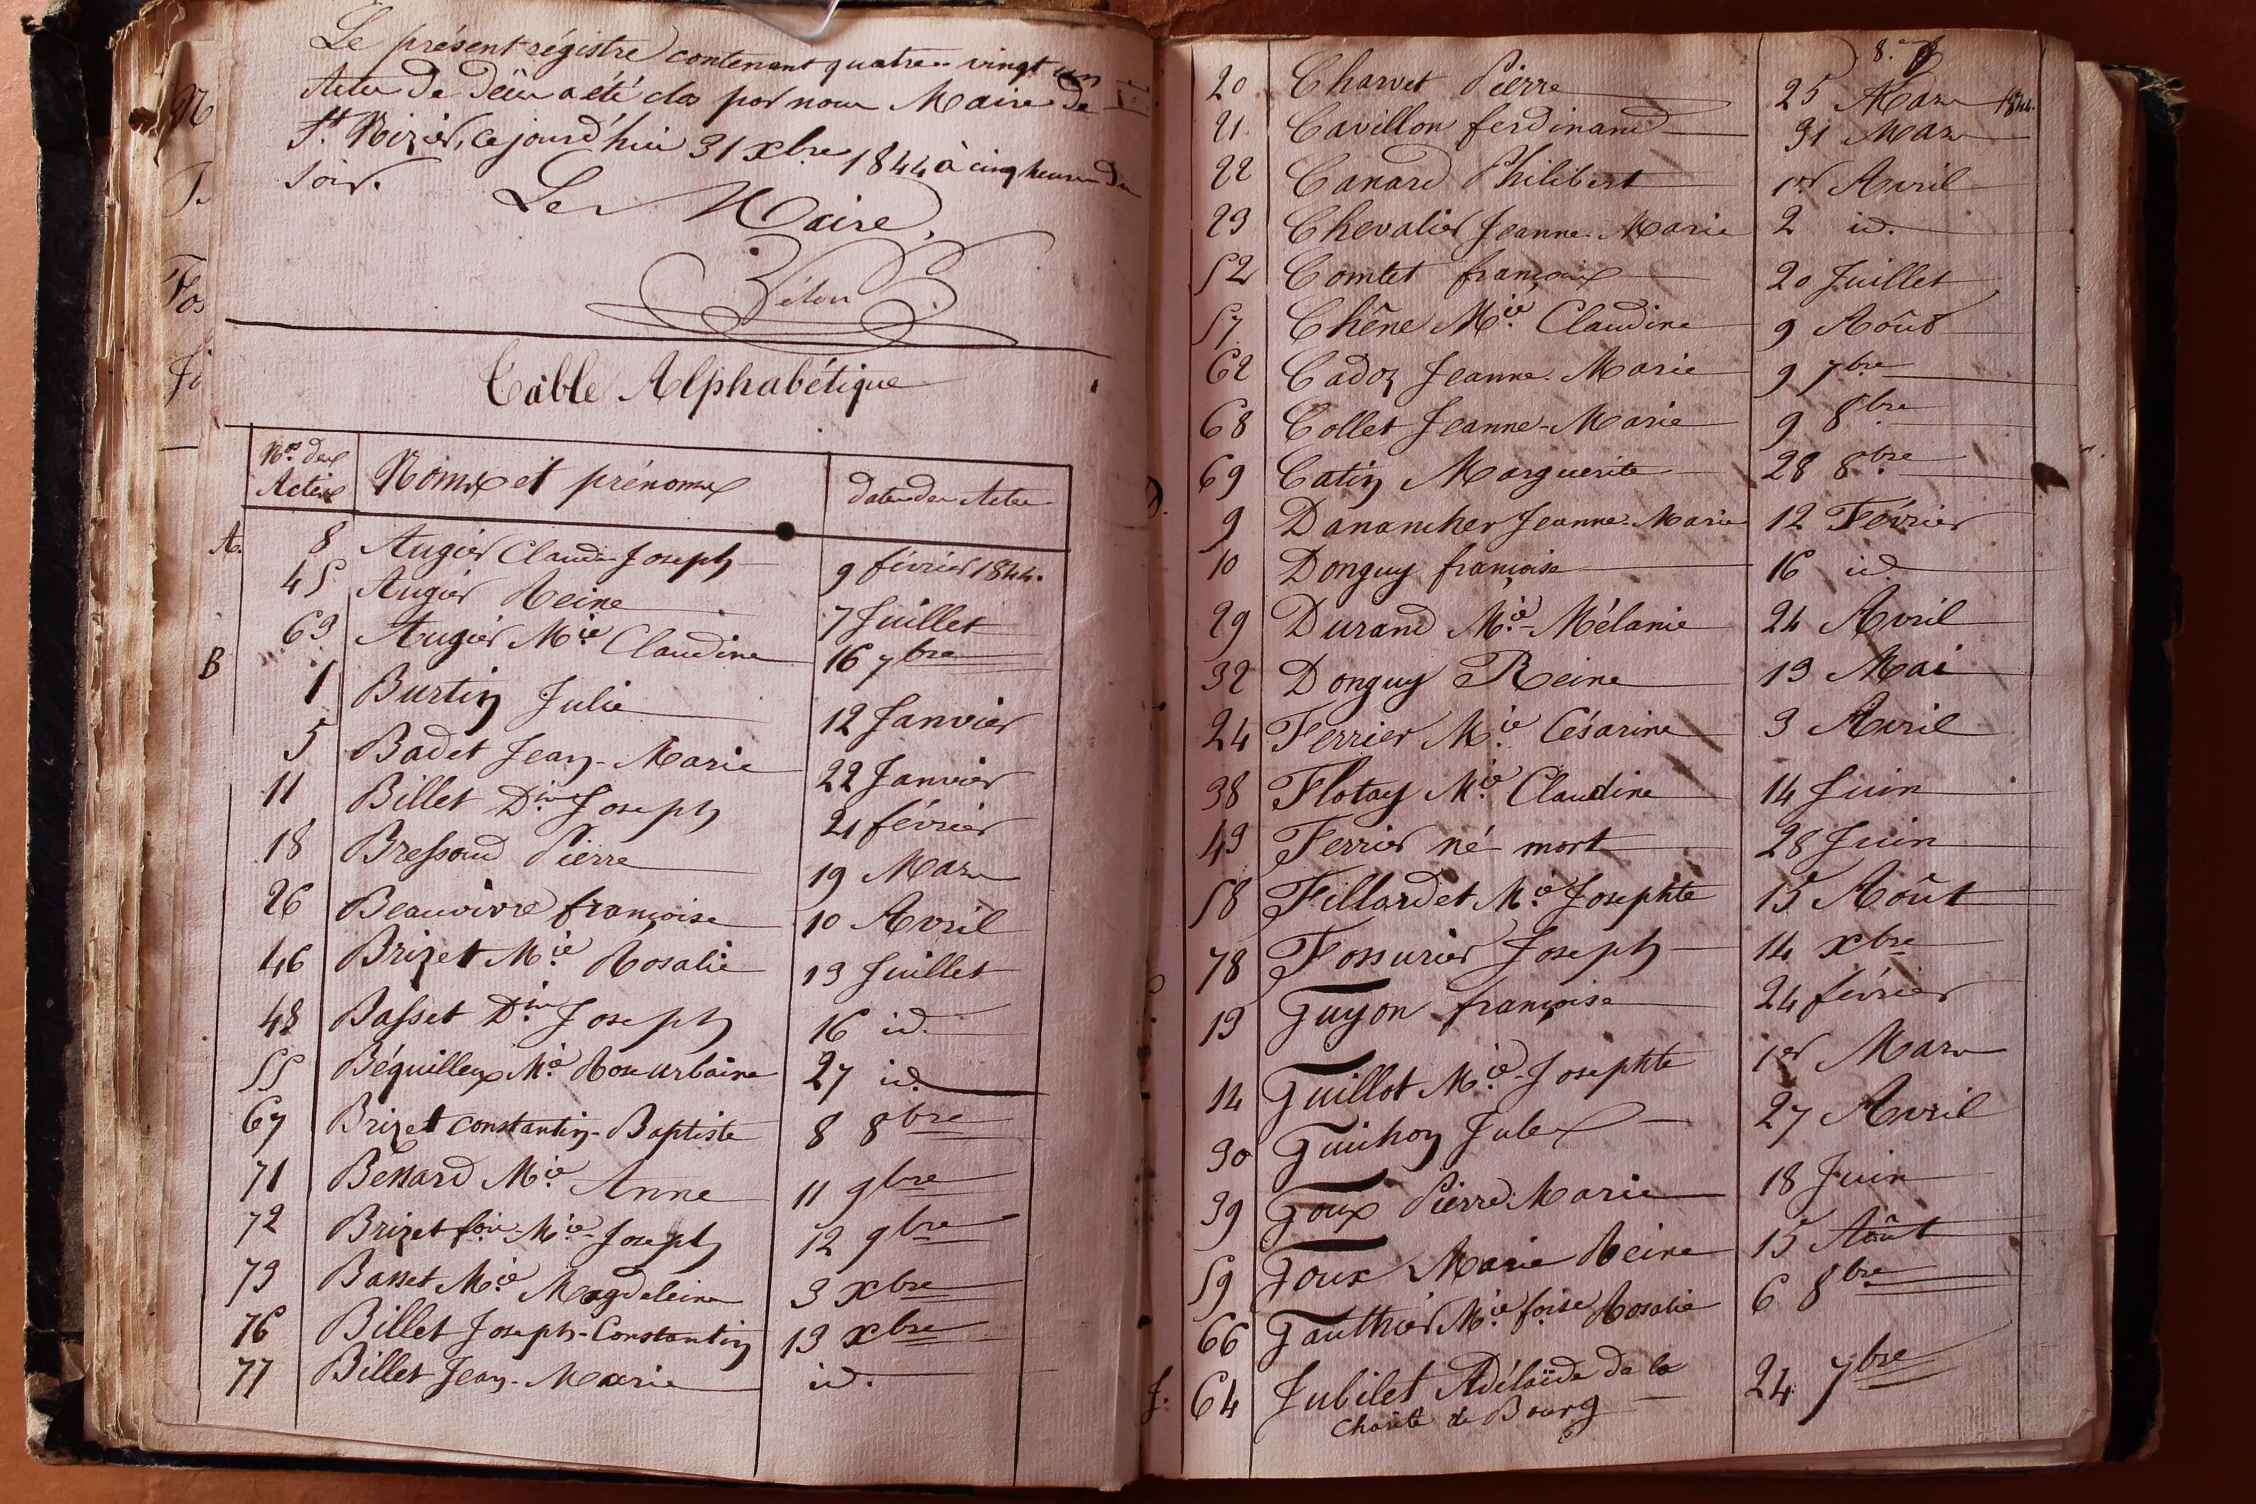 Le présent régistre contenant quatre-vingt un
Actes de décès a été clos par nous Maire de
St. Nizier, ce jourd'hui 31 xbre 1844 à cinq heures du
soir.
Le Maire,
Table Alphabétique
Nos des Actes Noms et prénoms dates des Actes
A. 8 Augier Claude Joseph 9 février 1844.
45 Augier Reine 7 Juillet
63 Augier Mie Claudine 16 7bre
B 1 Burtin Julie 12 Janvier
5 Badet Jean-Marie 22 Janvier
11 Billet Din Joseph 21 février
18 Bressoud Pierre 19 Mars
26 Beauvivre françoise 10 Avril
46 Brizet Mie Rosalie 13 Juillet
48 Basset Din Joseph 16 id.
55 Béquilleux Mie Rose urbaine 27 id.
67 Brizet constantin-Baptiste 8 8bre
71 Bernard Mie Anne 11 9bre
72 Brizet fois-Mie-Joseph 12 9bre
73 Basset Mie Magdeleine 3 xbre
76 Billet Joseph-Constantin 13 xbre
77 Billet Jean-Marie id.
20 Charvet Pierre 25 Mars 1844.
21 Cavillon ferdinand 31 Mars
22 Canard Philibert 1er Avril
23 Chevalier Jeanne-Marie 2 id.
52 Comtet françois 20 Juillet
57 Chêne Mie Claudine 9 Août
62 Cadoz Jeanne-Marie 9 7bre
68 Collet Jeanne-Marie 9 8bre
69 Catin Marguerite 28 8bre
D. 9 Danancher Jeanne-Marie 12 Février
10 Donguy françoise 16 id.
29 Durand Mie-Mélanie 24 Avril
32 Donguy Reine 13 Mai
24 Ferrier Mie Césarine 3 Avril
38 Flotay Mie Claudine 14 Juin
43 Ferrier né mort 28 Juin
58 Fillardet Mie Josephte 15 Août
78 Fossurier Joseph 14 xbre
13 Guyon françoise 24 février
14 Guillot Mie-Josephte 1er Mars
30 Guichon Jules 27 Avril
39 Goux Pierre Marie 18 Juin
59 Goux Marie Reine 15 Août
66 Gauthier Mie foise Rosalie 6 8bre
J. 64 Jubilet Adélaïde de la 24 7bre
charité de Bourg